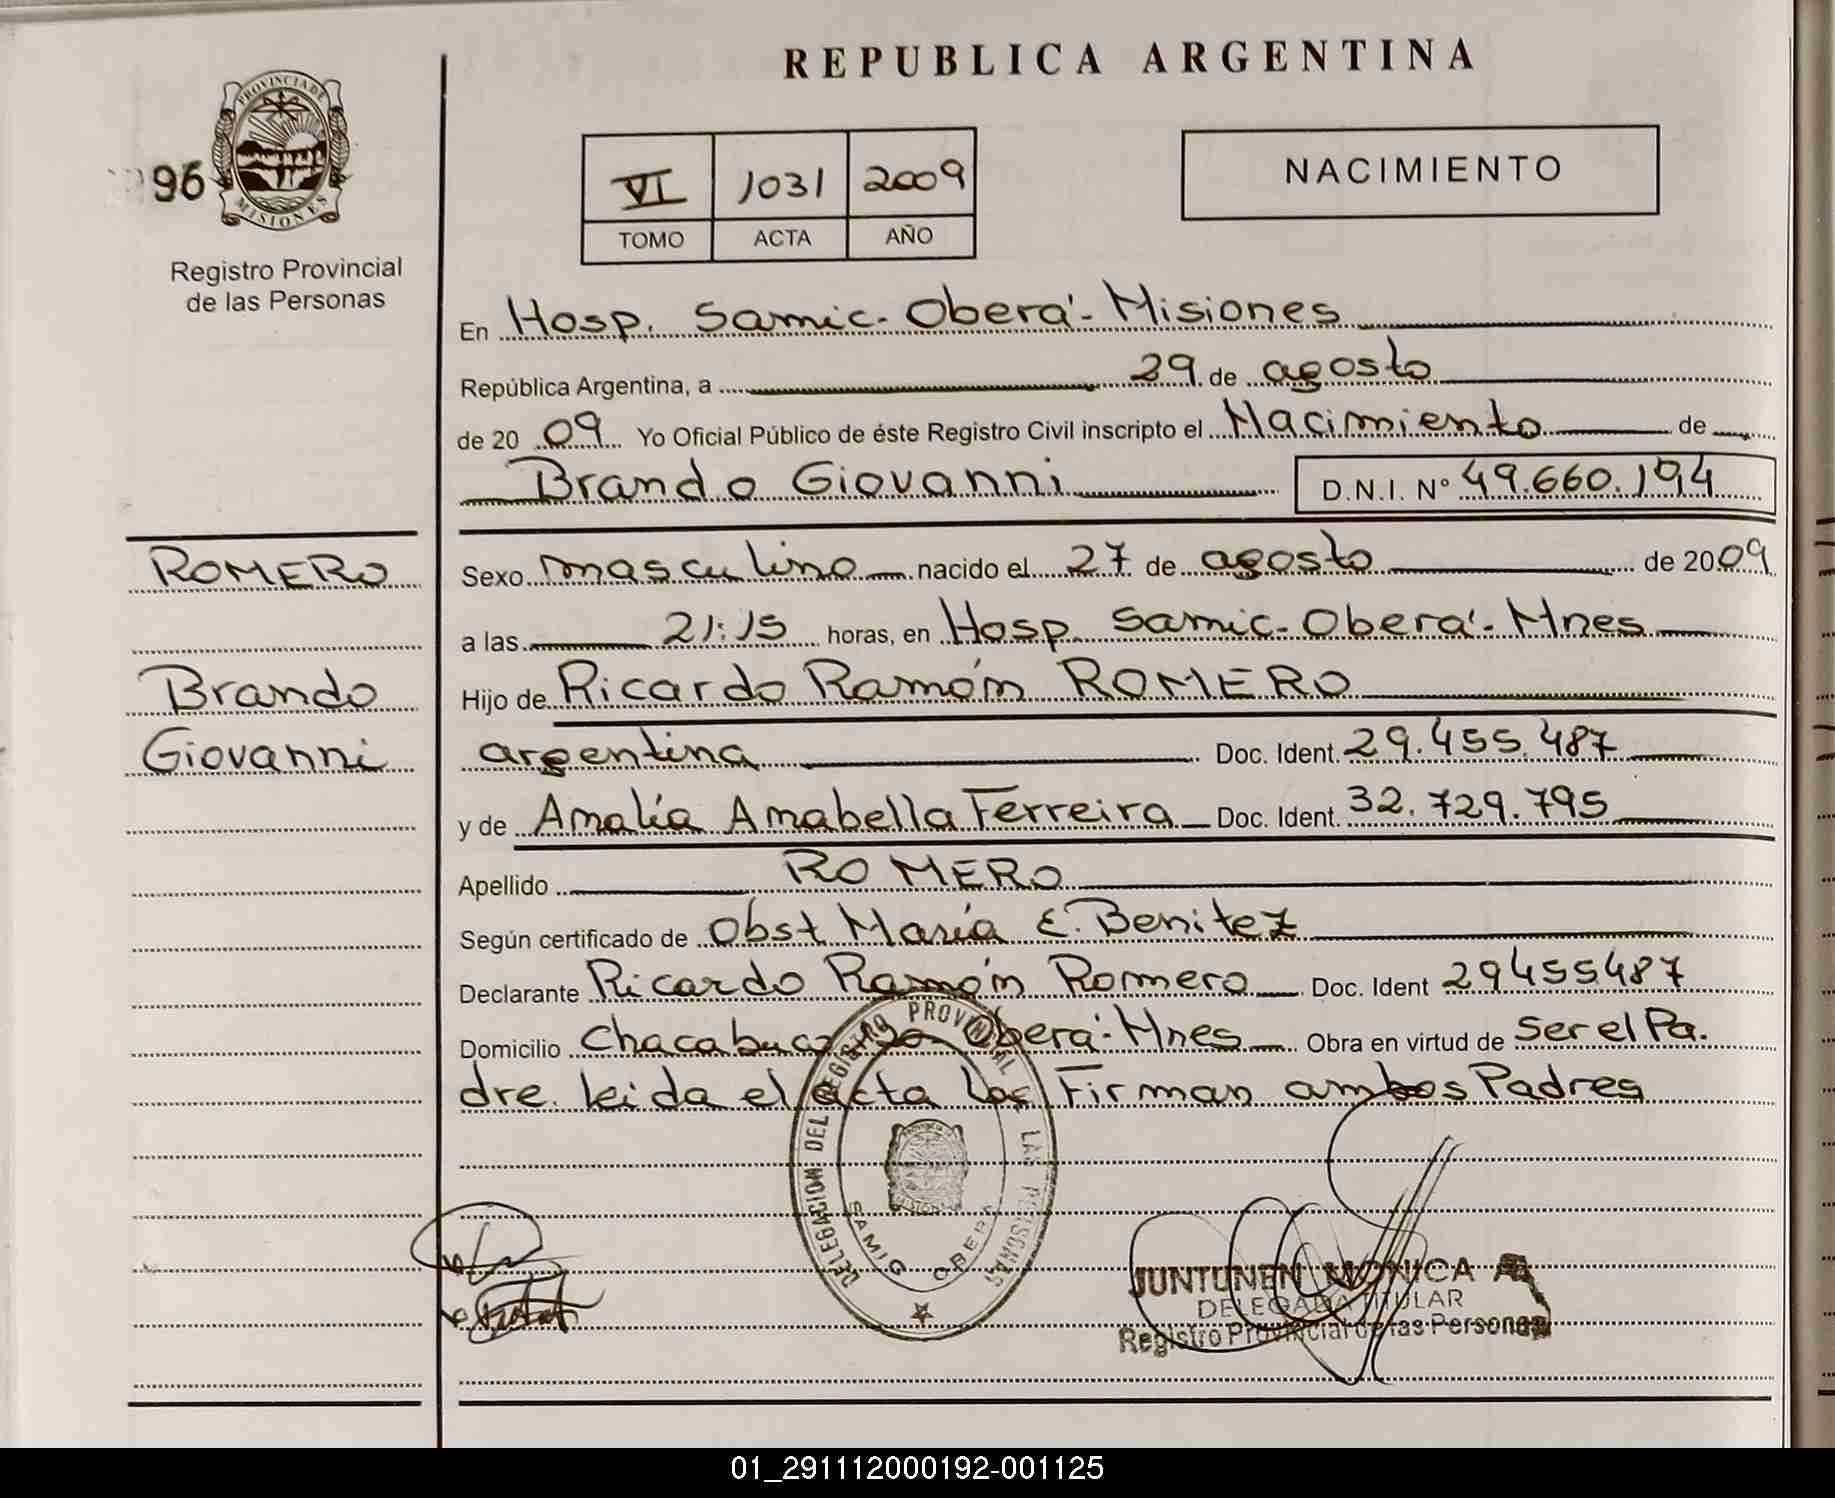 REPUBLICA ARGENTINA
PROVINCIA DE
MISIONES
96
Registro Provincial
de las Personas
VI 1031 2009
TOMO ACTA AÑO
NACIMIENTO
En Hosp. Samic - Oberá - Misiones
República Argentina, a 29 de agosto
de 2009 Yo Oficial Público de éste Registro Civil inscripto el Nacimiento de
Brando Giovanni D.N.I. Nº 49.660.194
ROMERO
Brando
Giovanni
Sexo masculino nacido el 27 de agosto de 2009
a las 21:15 horas, en Hosp. Samic - Oberá - Mnes
Hijo de Ricardo Ramón ROMERO
argentina Doc. Ident. 29.455.487
y de Amalía Amabella Ferreira Doc. Ident. 32.729.795
Apellido ROMERO
Según certificado de Obst María E. Benitez
Declarante Ricardo Ramón Romero Doc. Ident 29455487
Domicilio Oberá - Mnes Obra en virtud de Ser el Pa.
dre. leida el acta Firman ambos Padres
DELEGACION DEL REGISTRO PROVINCIAL DE LAS PERSONAS
SAMIC OBERA
JUNTUNEN MONICA A
DELEGADA TITULAR
Registro Provincial de las Personas
01_291112000192-001125